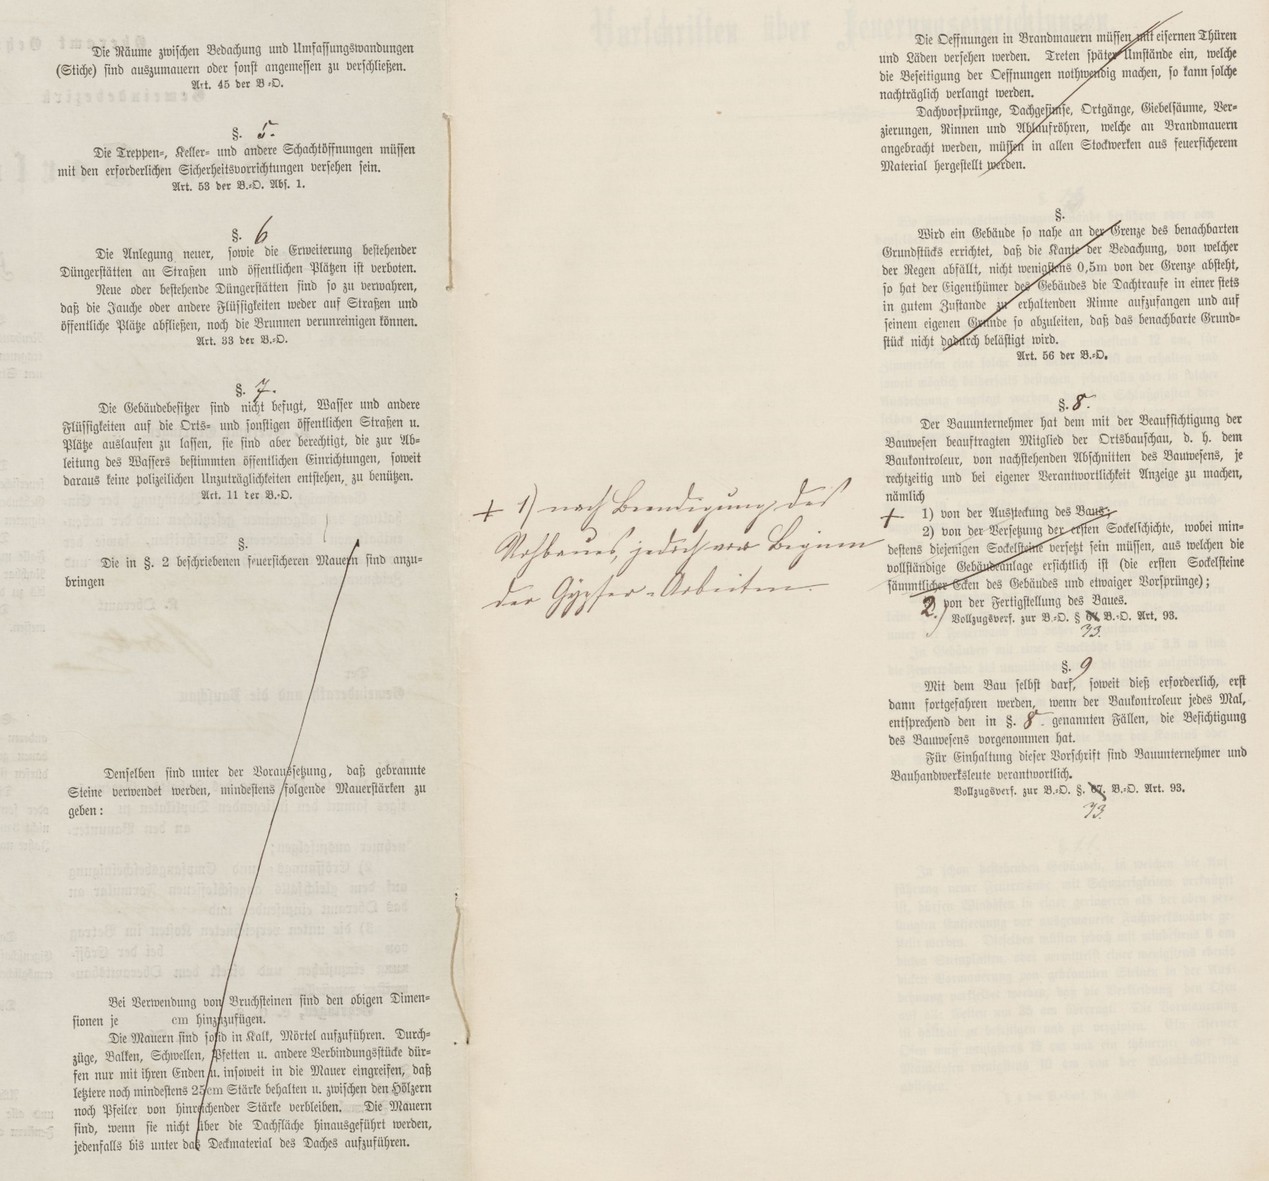 Die Räume zwischen Bedachung und Umfassungswandungen
(Stiche) sind auszumauern oder sonst angemessen zu verschließen.
Art. 45 der B.-O.
§. 5.
Die Treppen-, Keller- und andere Schachtöffnungen müssen
mit den erforderlichen Sicherheitsvorrichtungen versehen sein.
Art. 53 der B.-O. Abs. 1.
§. 6
Die Anlegung neuer, sowie die Erweiterung bestehender
Düngerstätten an Straßen und öffentlichen Plätzen ist verboten.
Neue oder bestehende Düngerstätten sind so zu verwahren,
daß die Jauche oder andere Flüssigkeiten weder auf Straßen und
öffentliche Plätze abfließen, noch die Brunnen verunreinigen können.
Art. 33 der B.-O.
§. 7.
Die Gebäudebesitzer sind nicht befugt, Wasser und andere
Flüssigkeiten auf die Orts- und sonstigen öffentlichen Straßen u.
Plätze auslaufen zu lassen, sie sind aber berechtigt, die zur Ab-
leitung des Wassers bestimmten öffentlichen Einrichtungen, soweit
daraus keine polizeilichen Unzuträglichkeiten entstehen, zu benützen.
Art. 11 der B.-O.
§.
Die in §. 2 beschriebenen feuersicheren Mauern sind anzu-
bringen
Denselben sind unter der Voraussetzung, daß gebrannte
Steine verwendet werden, mindestens folgende Mauerstärken zu
geben:
Bei Verwendung von Bruchsteinen sind den obigen Dimen-
sionen je cm hinzuzufügen.
Die Mauern sind solid in Kalk, Mörtel aufzuführen. Durch-
züge, Balken, Schwellen, Pfetten u. andere Verbindungsstücke dür-
fen nur mit ihren Enden u. insoweit in die Mauer eingreifen, daß
letztere noch mindestens 25cm Stärke behalten u. zwischen den Hölzern
noch Pfeiler von hinreichender Stärke verbleiben. Die Mauern
sind, wenn sie nicht über die Dachfläche hinausgeführt werden,
jedenfalls bis unter das Deckmaterial des Daches aufzuführen.
+ 1) nach Beendigung des
Rohbaues, jedoch vor Beginn
der Gypser-Arbeiten.
Die Oeffnungen in Brandmauern müssen mit eisernen Thüren
und Läden versehen werden. Treten später Umstände ein, welche
die Beseitigung der Oeffnungen nothwendig machen, so kann solche
nachträglich verlangt werden.
Dachvorsprünge, Dachgesimse, Ortgänge, Giebelsäume, Ver-
zierungen, Rinnen und Ablaufröhren, welche an Brandmauern
angebracht werden, müssen in allen Stockwerken aus feuersicherem
Material hergestellt werden.
§.
Wird ein Gebäude so nahe an der Grenze des benachbarten
Grundstücks errichtet, daß die Kante der Bedachung, von welcher
der Regen abfällt, nicht wenigstens 0,5m von der Grenze absteht,
so hat der Eigenthümer des Gebäudes die Dachtraufe in einer stets
in gutem Zustande zu erhaltenden Rinne aufzufangen und auf
seinem eigenen Grunde so abzuleiten, daß das benachbarte Grund-
stück nicht dadurch belästigt wird.
Art. 56 der B.-O.
§. 8.
Der Bauunternehmer hat dem mit der Beaufsichtigung der
Bauwesen beauftragten Mitglied der Ortsbauschau, d. h. dem
Baukontroleur, von nachstehenden Abschnitten des Bauwesens, je
rechtzeitig und bei eigener Verantwortlichkeit Anzeige zu machen,
nämlich
+ 1) von der Aussteckung des Baus;
2) von der Versetzung der ersten Sockelschichte, wobei min-
destens diejenigen Sockelsteine versetzt sein müssen, aus welchen die
vollständige Gebäudeanlage ersichtlich ist (die ersten Sockelsteine
sämmtlicher Ecken des Gebäudes und etwaiger Vorsprünge);
2.) von der Fertigstellung des Baues.
Vollzugsverf. zur B.-O. § B.-O. Art. 93.
73.
§. 9
Mit dem Bau selbst darf, soweit dieß erforderlich, erst
dann fortgefahren werden, wenn der Baukontroleur jedes Mal,
entsprechend den in §. 8. genannten Fällen, die Besichtigung
des Bauwesens vorgenommen hat.
Für Einhaltung dieser Vorschrift sind Bauunternehmer und
Bauhandwerksleute verantwortlich.
Vollzugsverf. zur B.-O. §. B.-O. Art. 93.
73.